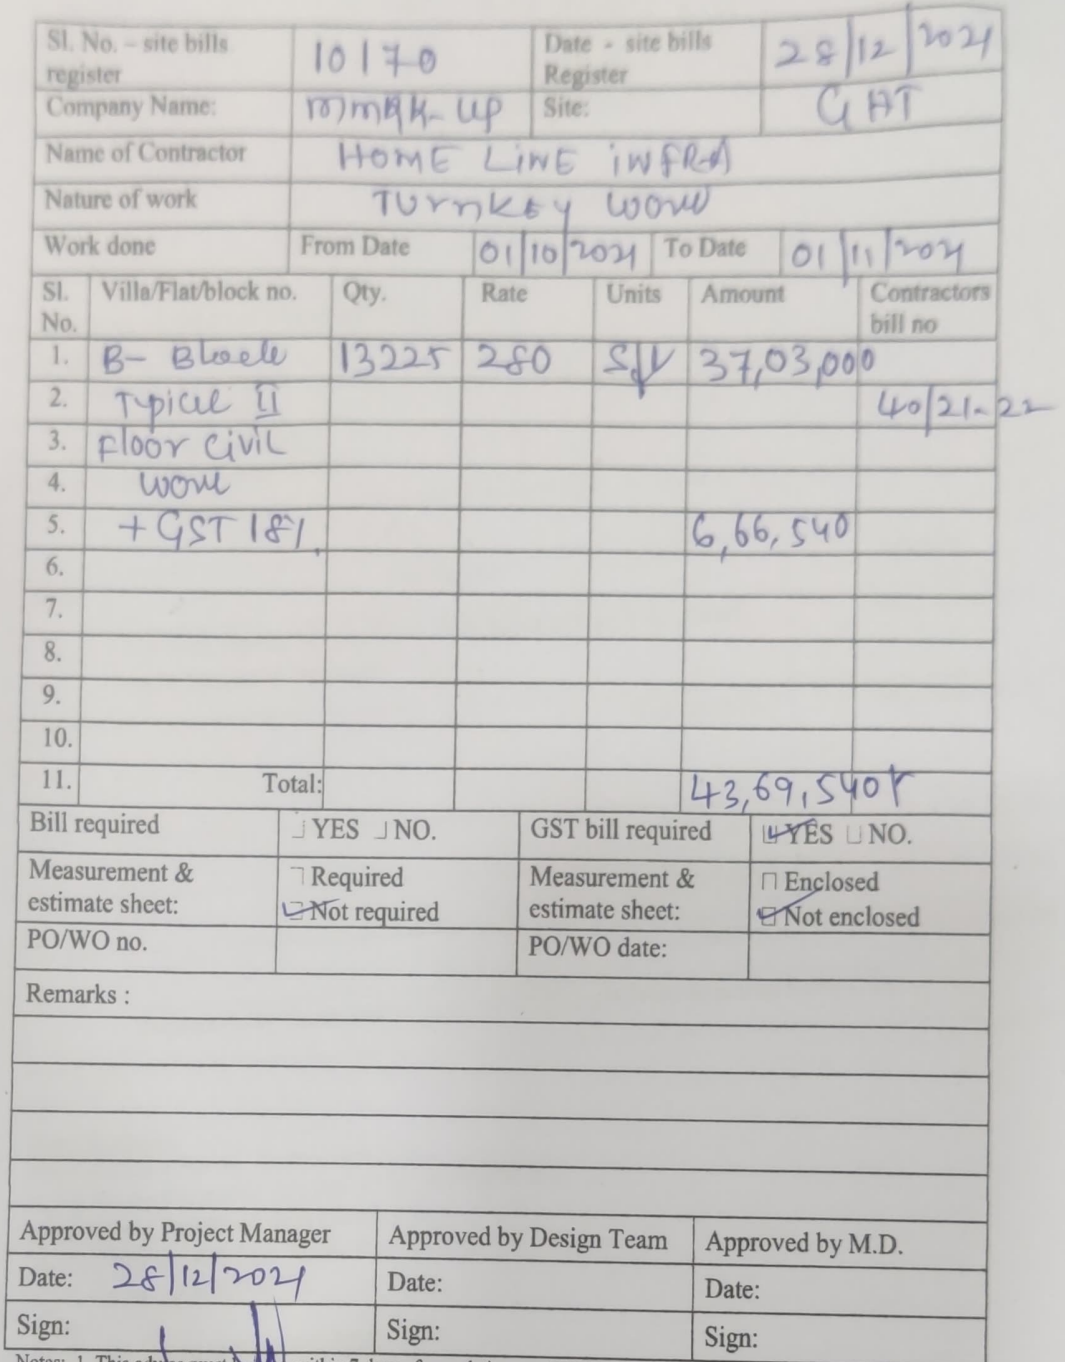 Sl. No. - site bills register 10170 Date - site bills Register 28/12/2021
Company Name: Site: GHT
Name of Contractor HOME LINE iNFRA
Nature of work Turnkey work
Work done From Date 01/10/2021 To Date 01/11/2021
Sl. No. Villa/Flat/block no. Qty. Rate Units Amount Contractors bill no
1. B- Block 13225 280 37,03,000
2. Typical II 40/21-22
3. Floor Civil
4. work
5. + GST 18% 6,66,540
6.
7.
8.
9.
10.
11. Total: 43,69,540
Bill required YES NO. GST bill required YES NO.
Measurement & estimate sheet: Required Not required Measurement & estimate sheet: Enclosed Not enclosed
PO/WO no. PO/WO date:
Remarks :
Approved by Project Manager Approved by Design Team Approved by M.D.
Date: 28/12/2021 Date: Date:
Sign: Sign: Sign: